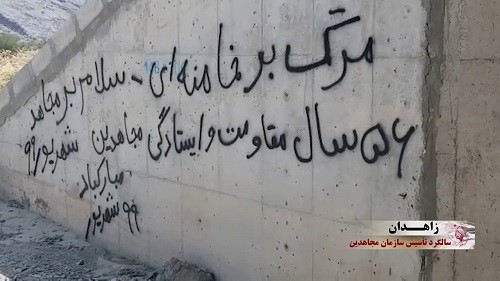 مرگ بر خامنه‌ای - سلام بر مجاهد
۵۶ سال مقاومت و ایستادگی مجاهدین شهریور ۹۹
مبارکباد
۹۹ شهریور
زاهدان
سالگرد تاسیس سازمان مجاهدین